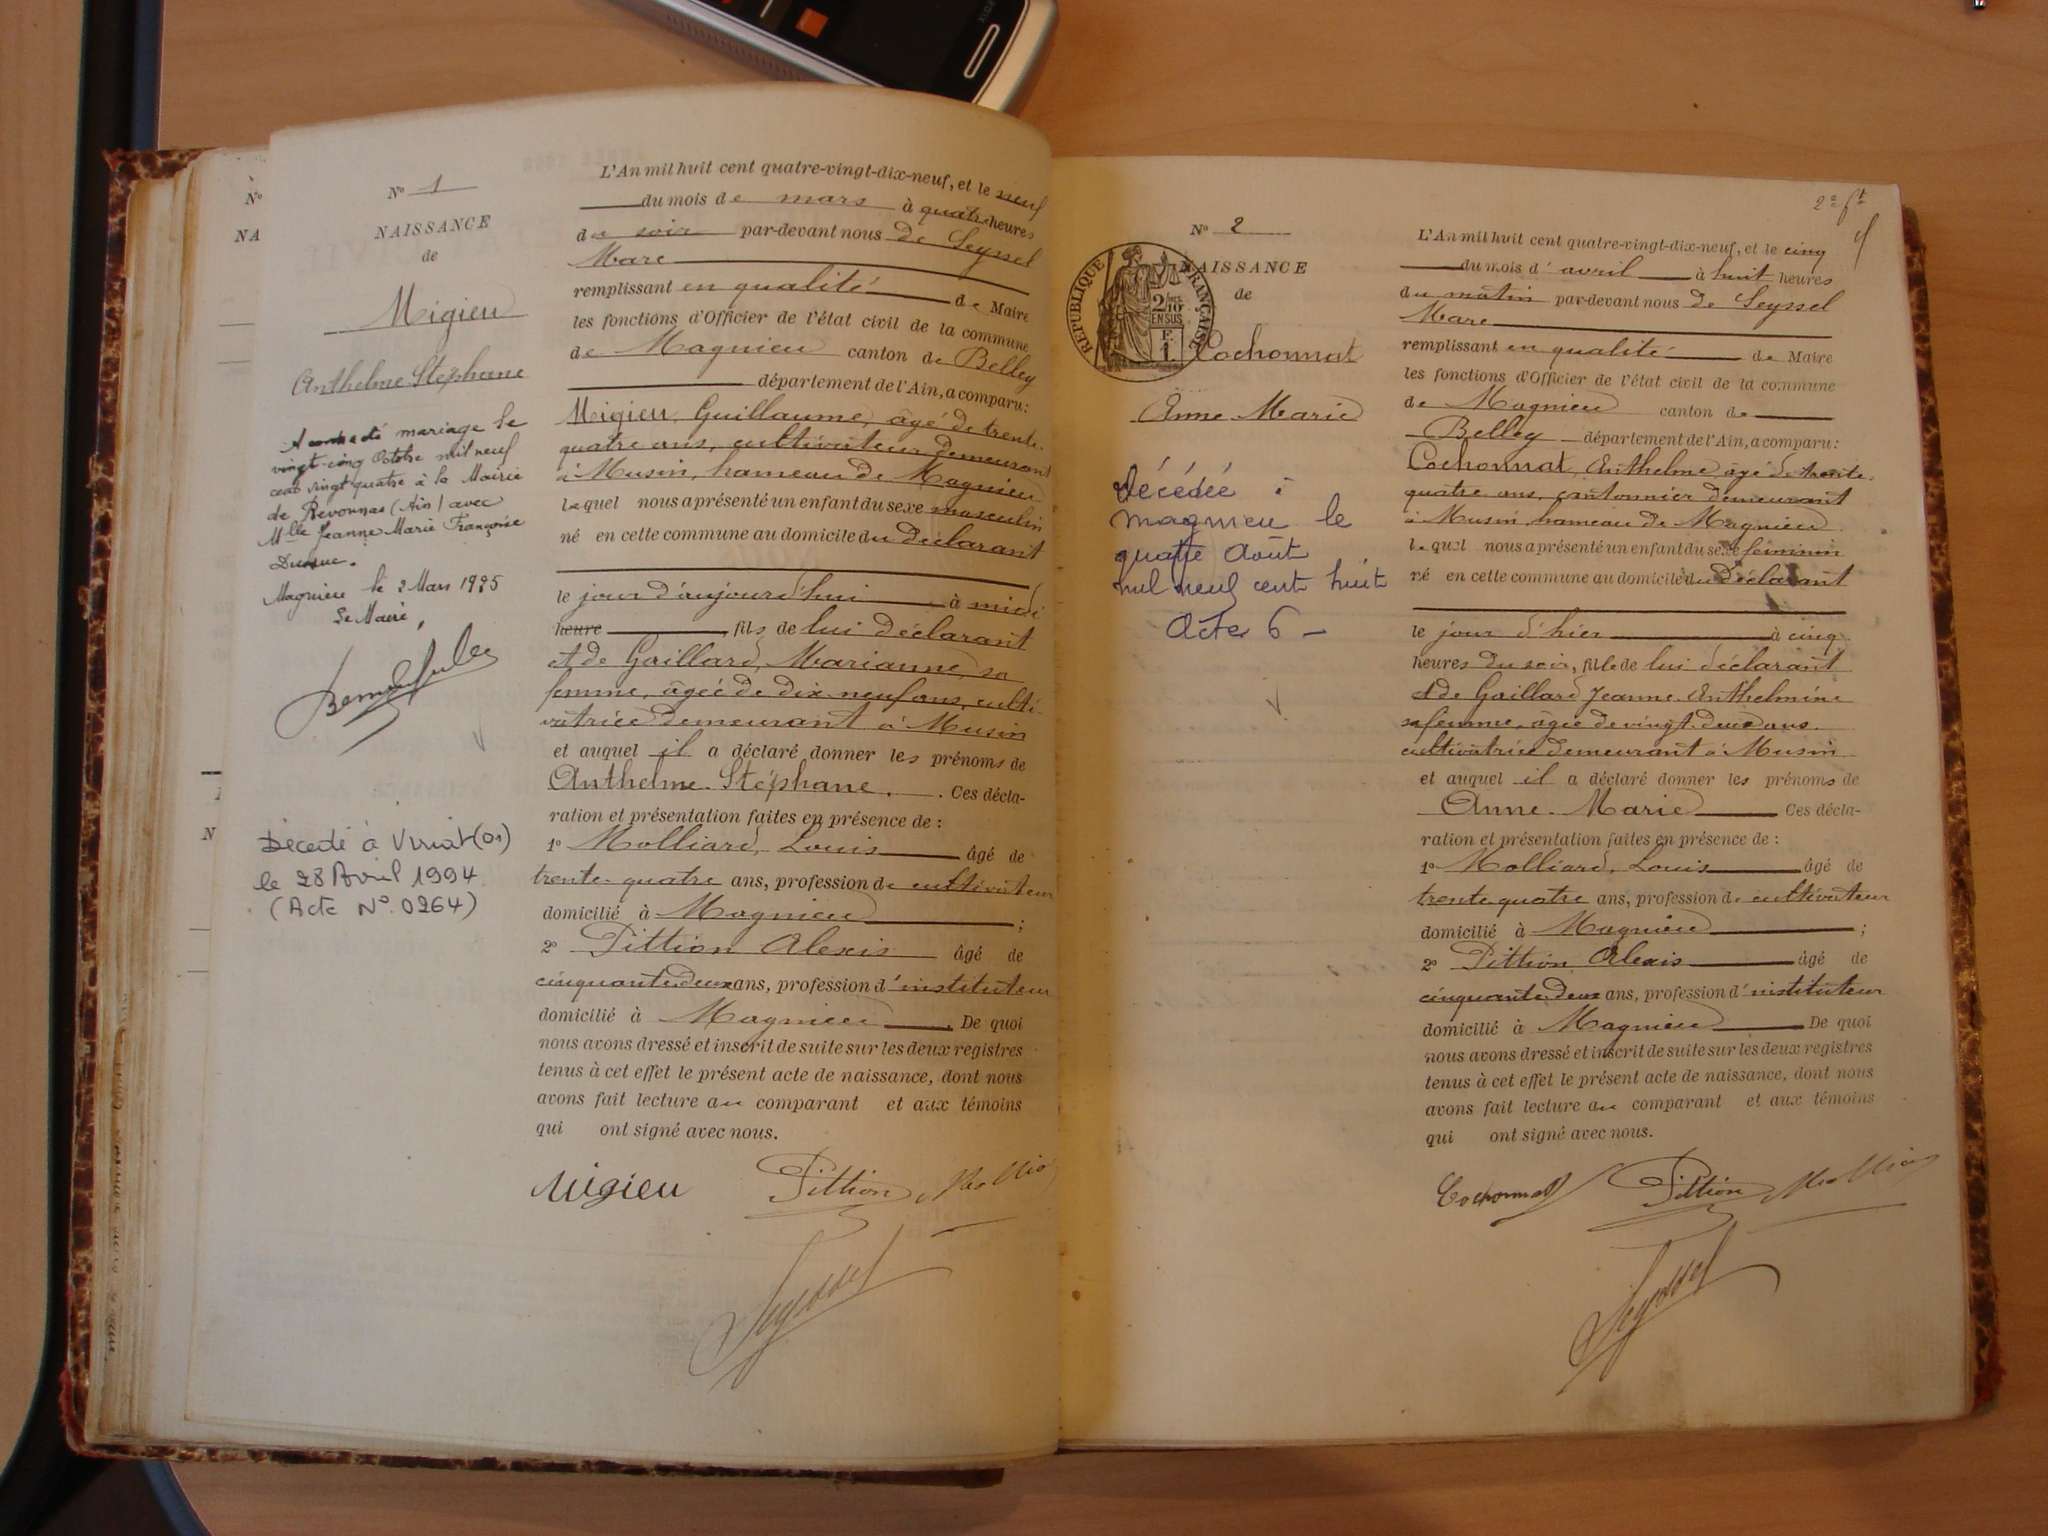 Nº
NA
N
Nº 1
NAISSANCE
de
Migieu
Anthelme Stéphane
A contracté mariage le
vingt-cinq Octobre mil neuf
cent vingt quatre à la Mairie
de Revonnas (Ain) avec
Mlle Jeanne Marie Françoise
Magnieu le 2 Mars 1925
Le Maire,
Décédé à Viriat (01)
le 28 Avril 1994
(Acte Nº 0264)
L'An mil huit cent quatre-vingt-dix-neuf, et le neuf
du mois de mars à quatre heures
du soir par-devant nous de Seyssel
Marc
remplissant en qualité de Maire
les fonctions d'Officier de l'état civil de la commune
de Magnieu canton de Belley
département de l'Ain, a comparu:
Migieu, Guillaume, âgé de trente-
quatre ans, cultivateur demeurant
à Musin, hameau de Magnieu
lequel nous a présenté un enfant du sexe masculin
né en cette commune au domicile du déclarant
le jour d'aujourd'hui à midi
heure, fils de lui déclarant
et de Gaillard, Marianne, sa
femme, âgée de dix-neuf ans, culti-
vatrice demeurant à Musin
et auquel il a déclaré donner les prénoms de
Anthelme-Stéphane. Ces décla-
ration et présentation faites en présence de :
1º Molliard, Louis âgé de
trente-quatre ans, profession de cultivateur
domicilié à Magnieu ;
2º Pittion Alexis âgé de
cinquante-deux ans, profession d'instituteur
domicilié à Magnieu. De quoi
nous avons dressé et inscrit de suite sur les deux registres
tenus à cet effet le présent acte de naissance, dont nous
avons fait lecture au comparant et aux témoins
qui ont signé avec nous.
Migieu Pittion Molliard
Seyssel
2e ft
Nº 2
NAISSANCE
de
RÉPUBLIQUE FRANÇAISE
2/10
EN SUS
F.
1
Cochonnat
Anne Marie
Décédée à
Magnieu le
quatre Août
mil neuf cent huit
Acte 6 –
L'An mil huit cent quatre-vingt-dix-neuf, et le cinq
du mois d'avril à huit heures
du matin par-devant nous de Seyssel
Marc
remplissant en qualité de Maire
les fonctions d'Officier de l'état civil de la commune
de Magnieu canton de
Belley département de l'Ain, a comparu:
Cochonnat, Anthelme âgé de trente-
quatre ans, cantonnier demeurant
à Musin, hameau de Magnieu
lequel nous a présenté un enfant du sexe féminin
né en cette commune au domicile du déclarant
le jour d'hier à cinq
heures du soir, fille de lui déclarant
et de Gaillard Jeanne-Anthelmine
sa femme, âgée de vingt-deux ans
cultivatrice demeurant à Musin
et auquel il a déclaré donner les prénoms de
Anne-Marie Ces décla-
ration et présentation faites en présence de :
1º Molliard, Louis âgé de
trente quatre ans, profession de cultivateur
domicilié à Magnieu ;
2º Pittion Alexis âgé de
cinquante-deux ans, profession d'instituteur
domicilié à Magnieu De quoi
nous avons dressé et inscrit de suite sur les deux registres
tenus à cet effet le présent acte de naissance, dont nous
avons fait lecture au comparant et aux témoins
qui ont signé avec nous.
Cochonnat Pittion Molliard
Seyssel